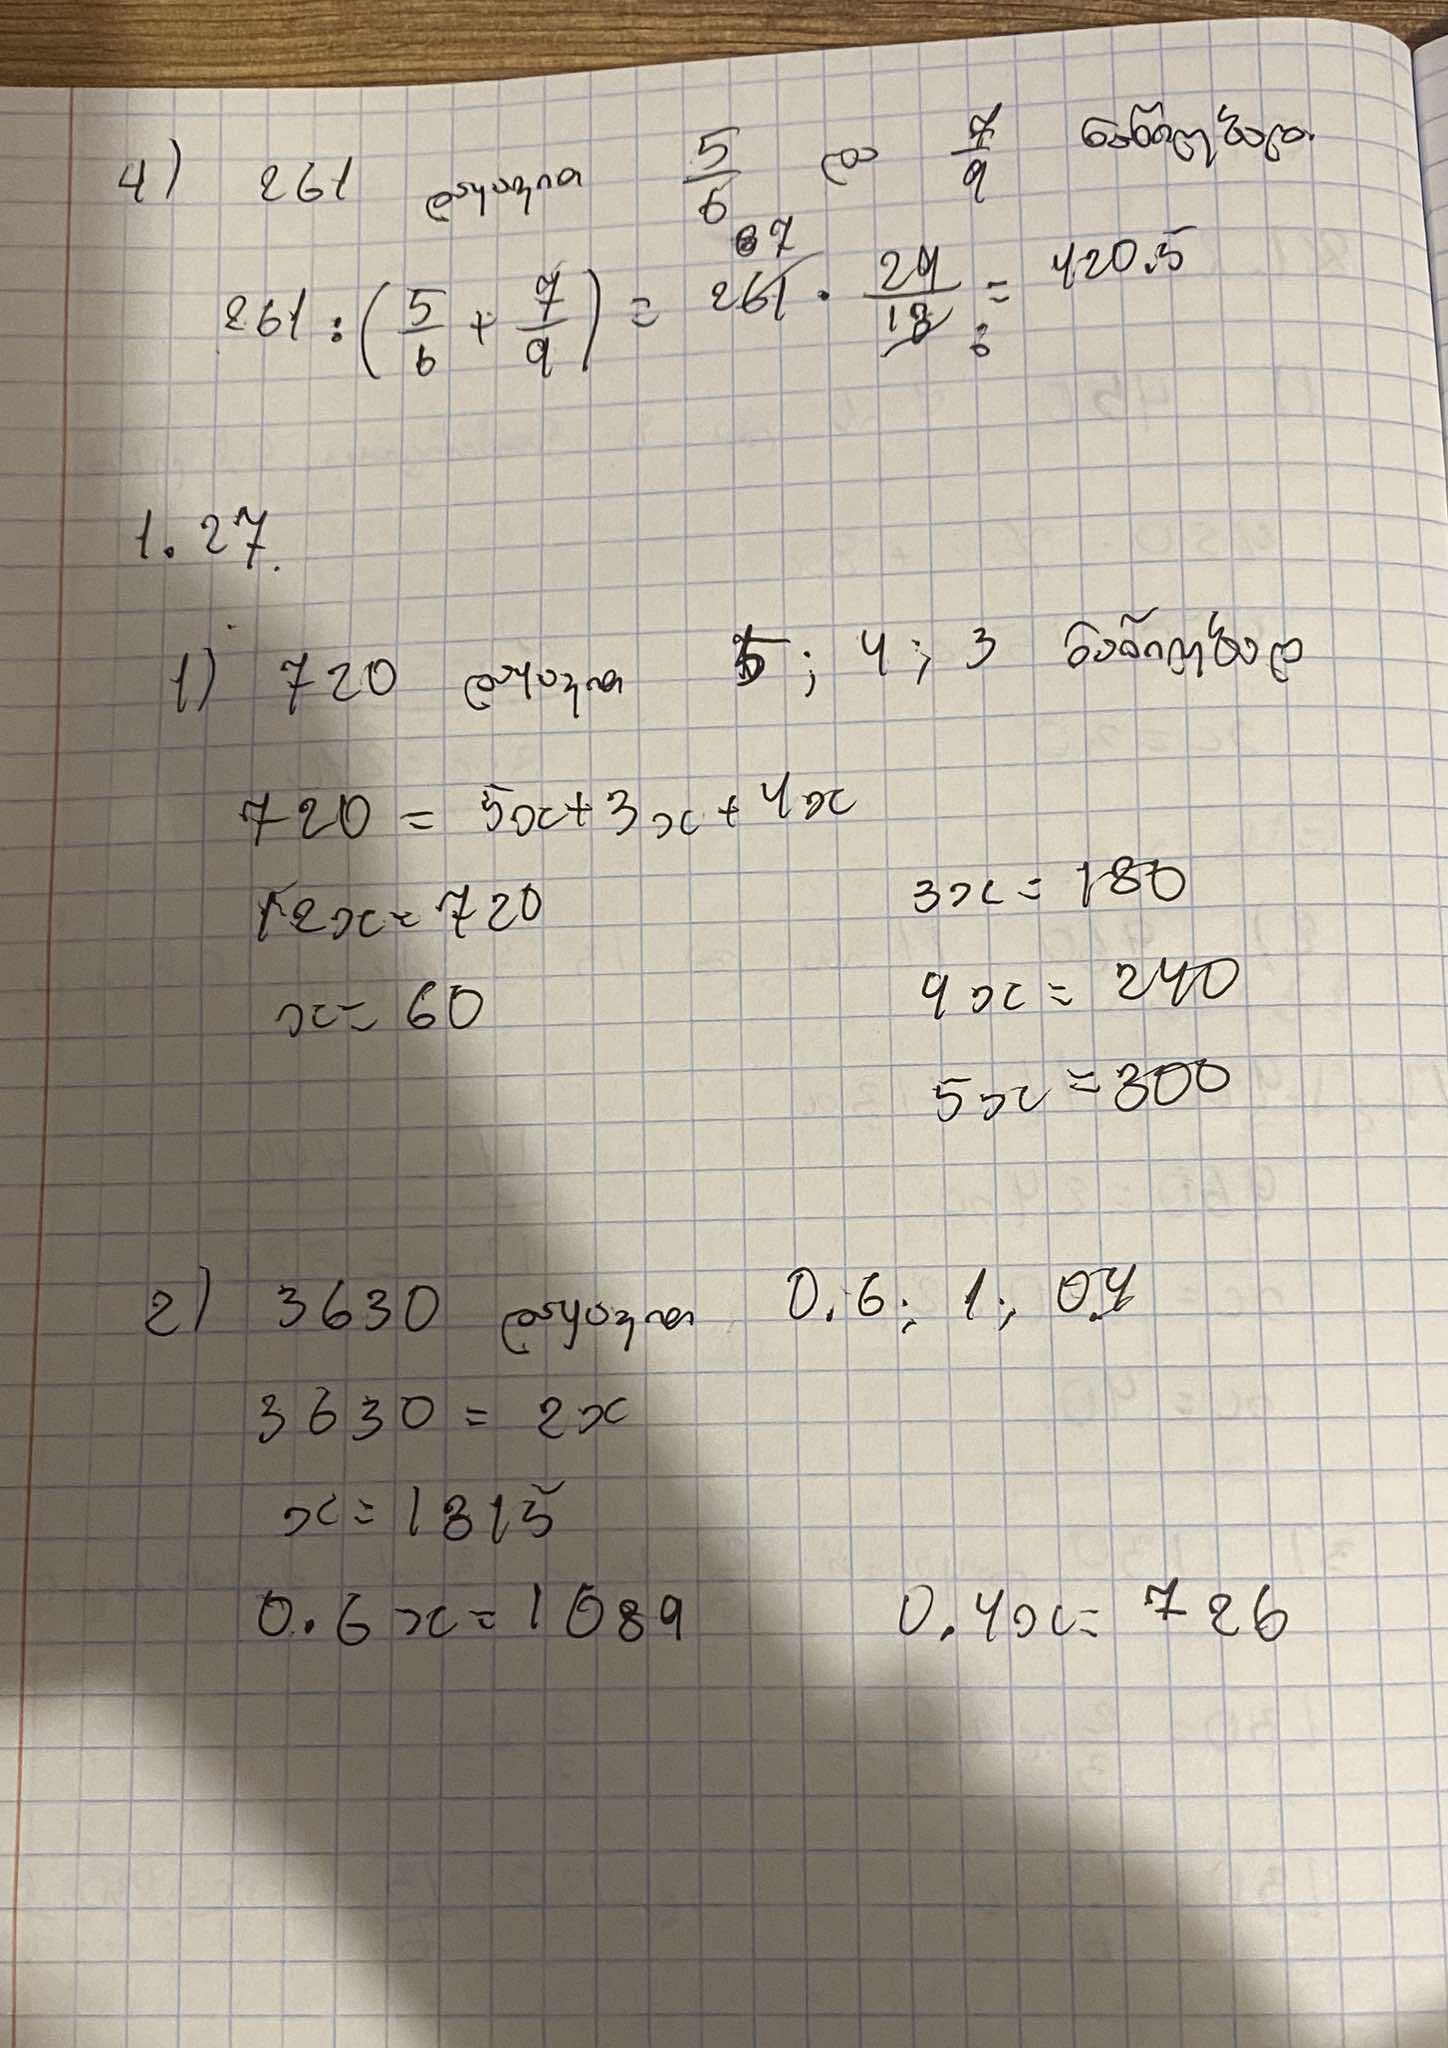 4) 261 დაყავით 5/6 და 7/9 ნაწილებად.
261 : (5/6 + 7/9) = 261 87 · 29/18 6 = 420.5
1.27.
1) 720 დაყავით 5 ; 4 ; 3 ნაწილებად
720 = 5x + 3x + 4x
12x = 720 3x = 180
x = 60 4x = 240
5x = 300
2) 3630 დაყავით 0.6 ; 1 ; 0.4
3630 = 2x
x = 1815
0.6x = 1089 0.4x = 726